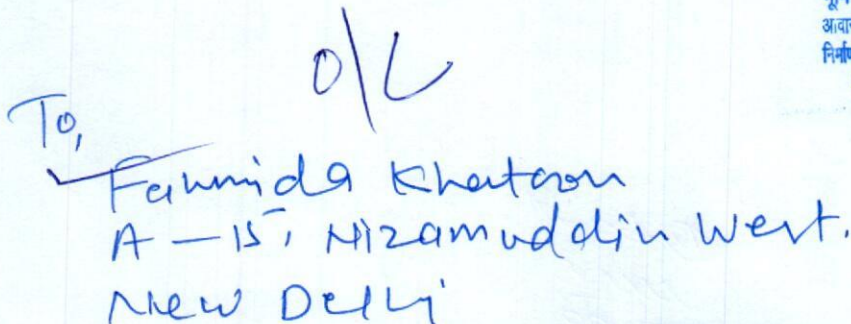 O/L
To,
Fahmida Khatoon
A-15, Nizamuddin West.
New Delhi